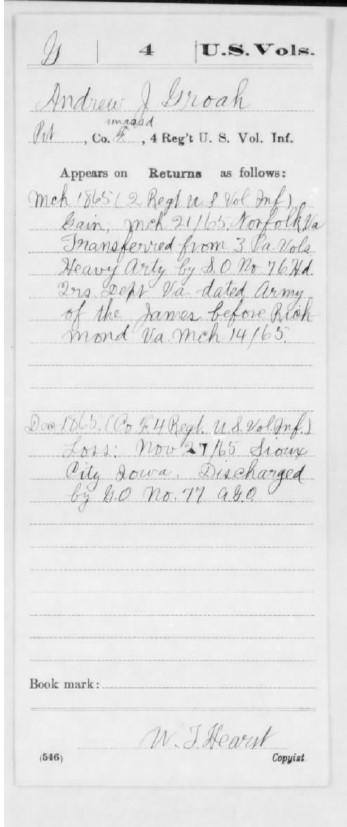 G | 4 | U.S. Vols.
Andrew J Groah
Pvt, Co. F, 4 Reg't U. S. Vol. Inf.
Appears on Returns as follows:
Mch 1865 (2 Regt U S Vol Inf)
Gain, Mch 21/65 Norfolk Va
Transferred from 3 Pa Vols
Heavy Arty by S.O No 76 Hd
Qrs Dept Va dated Army
of the James before Rich
mond Va Mch 14/65.
Dec 1865. (Co F 4 Regt. U S Vol Inf.)
Loss: Nov 27/65 Sioux
City Iowa. Discharged
by G.O No. 77 A.G.O.
Book mark:
W. T. Hearst
(546) Copyist